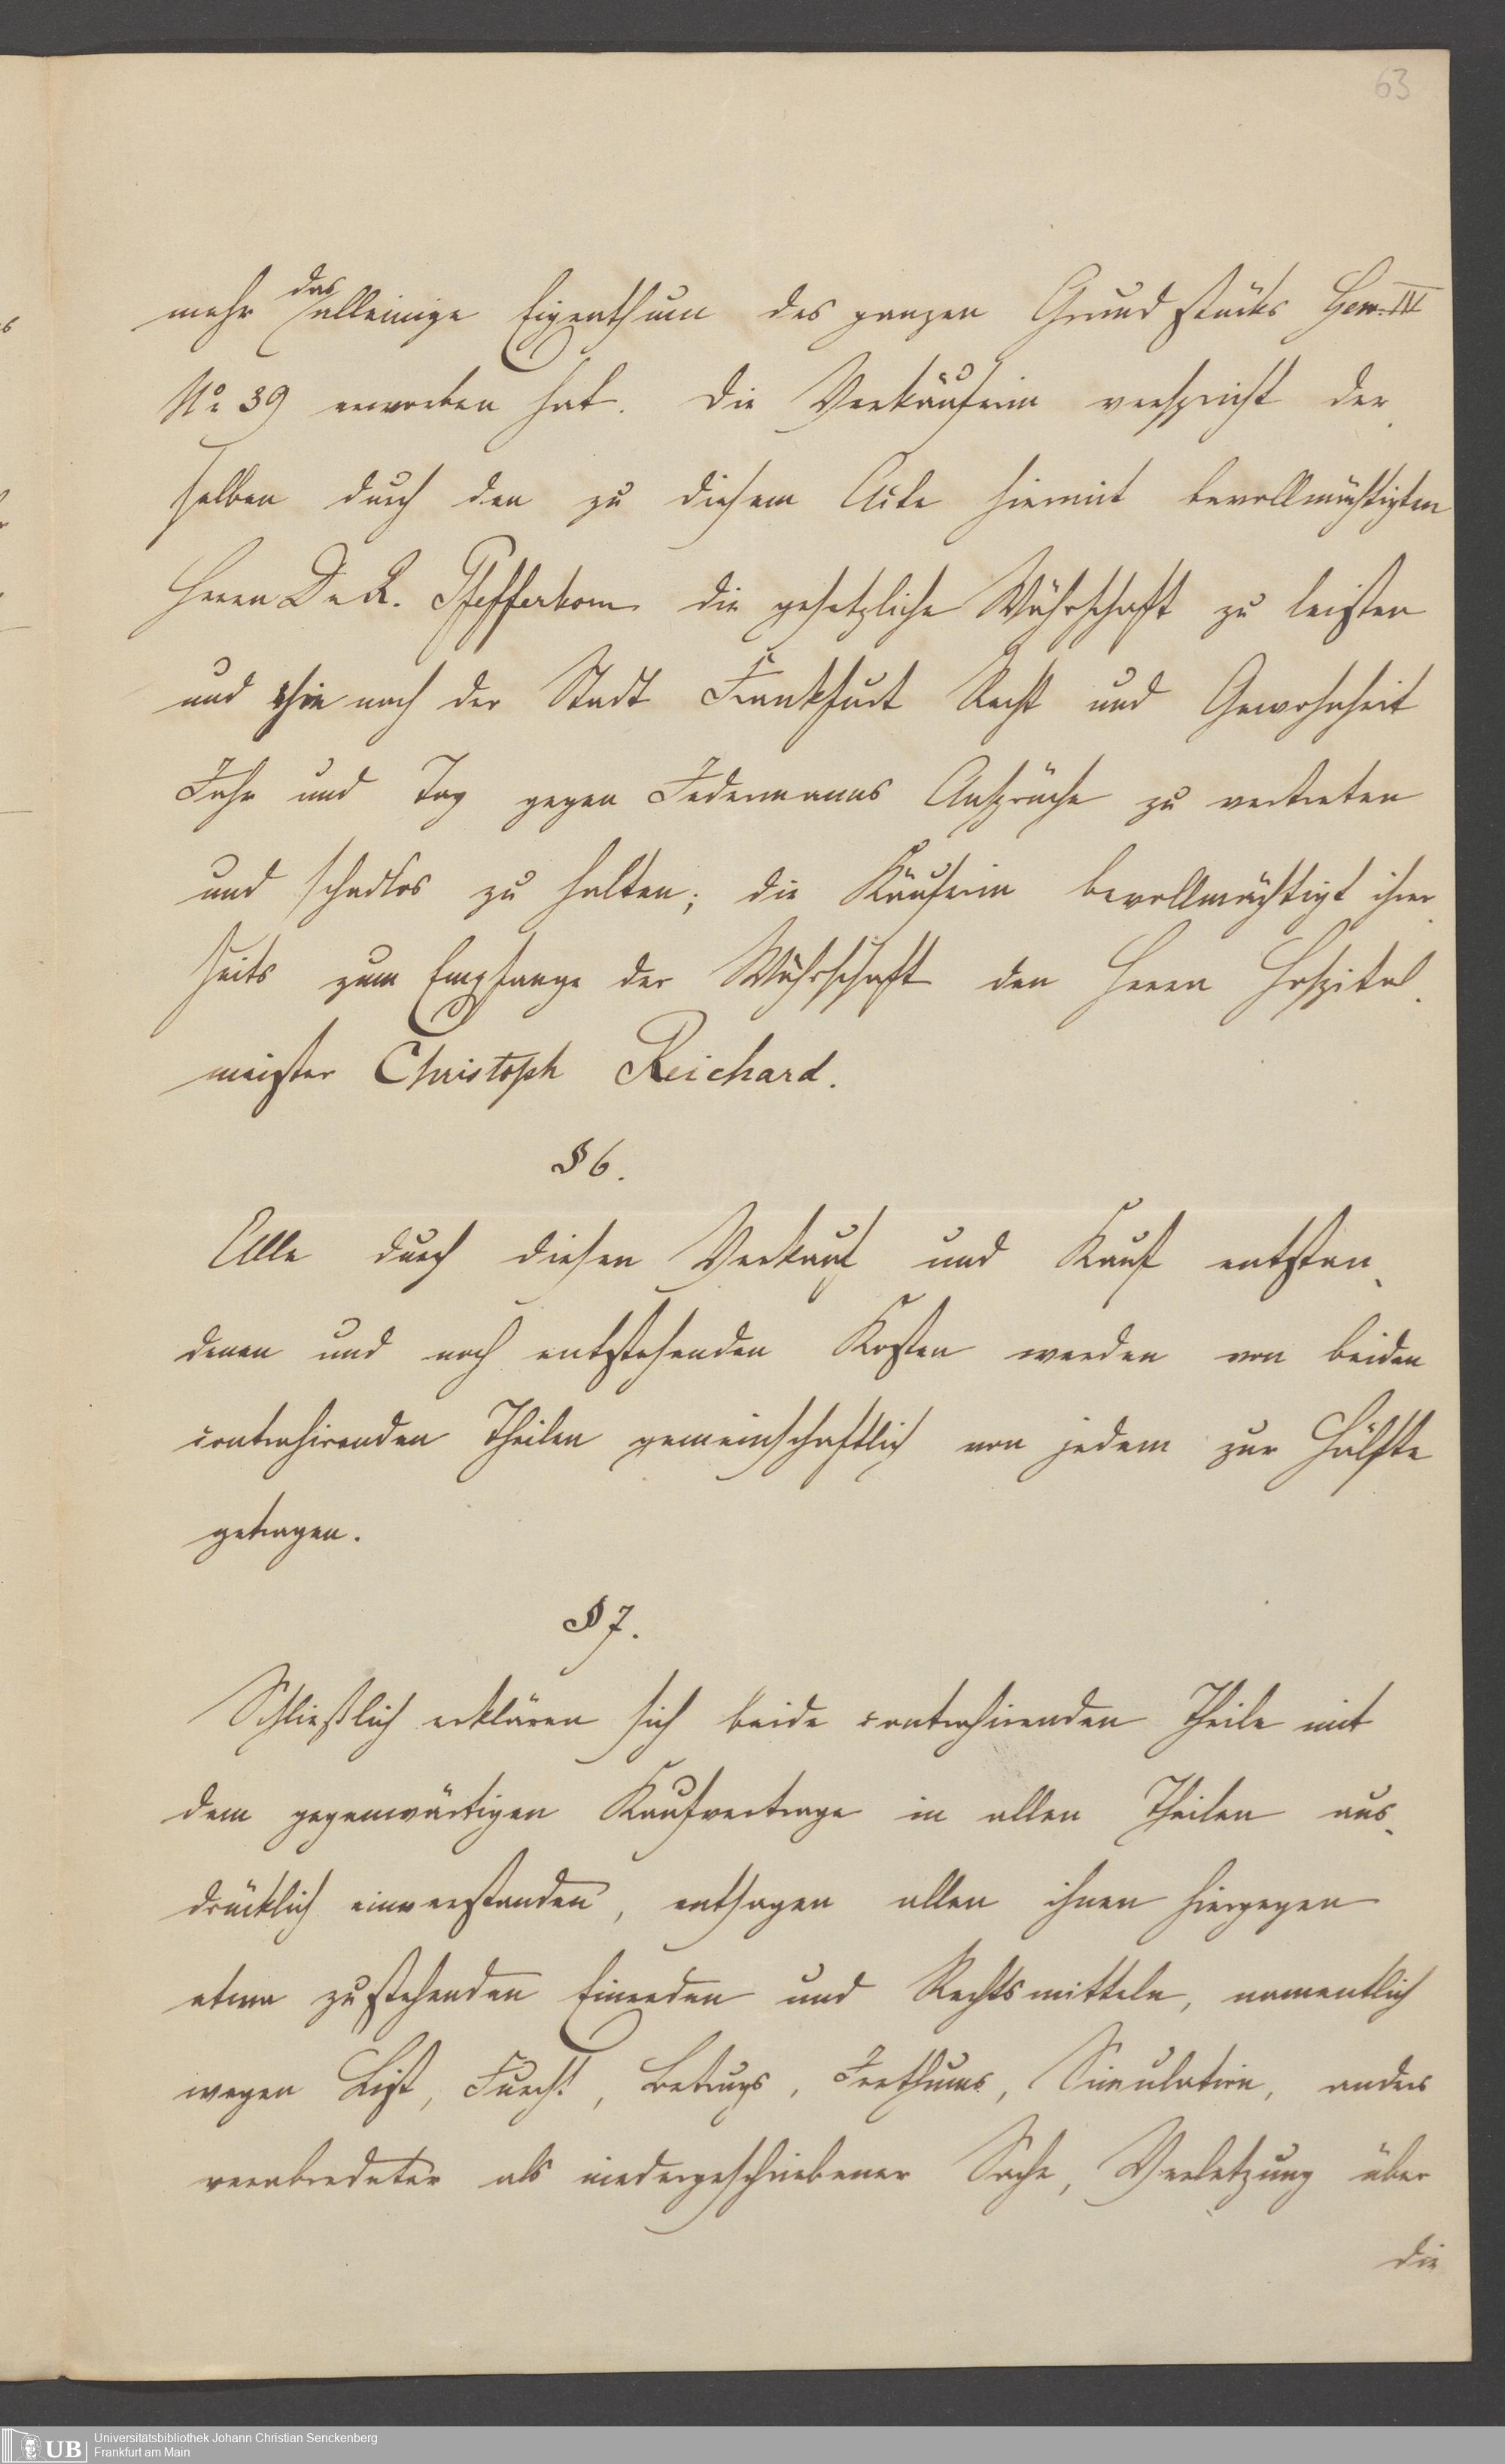 63
das
mehr alleinige Eigenthum des ganzen Grundstücks Gew. IV
No 39 erworben hat. Die Verkäuferin verspricht der,
selben durch den zu diesem Acte hiermit bevollmächtigten
Herrn Dr. R. Pfefferkorn die gesetzliche Währschaft zu leisten
und sie nach der Stadt Frankfurt Recht und Gewohnheit
Jahr und Tag gegen Jedermanns Ansprüche zu vertreten
und schadlos zu halten; die Käuferin bevollmächtigt ihrer,
seits zum Empfange der Währschaft den Herrn Hospital,
meister Christoph Reichard.
§ 6.
Alle durch diesen Verkauf und Kauf entstan,
denen und noch entstehenden Kosten werden von beiden
contrahirenden Theilen gemeinschaftlich von jedem zur Hälfte
getragen.
§ 7.
Schließlich erklären sich beide contrahirenden Theile mit
dem gegenwärtigen Kaufvertrage in allen Theilen aus,
drücklich einverstanden, entsagen allen ihnen hiergegen
etwa zustehenden Einreden und Rechtsmitteln, namentlich
wegen List, Furcht, Betrugs, Irrthums, Simulation, anders
verabredeter als niedergeschriebener Sache, Verletzung über
die
UB
Universitätsbibliothek Johann Christian Senckenberg
Frankfurt am Main